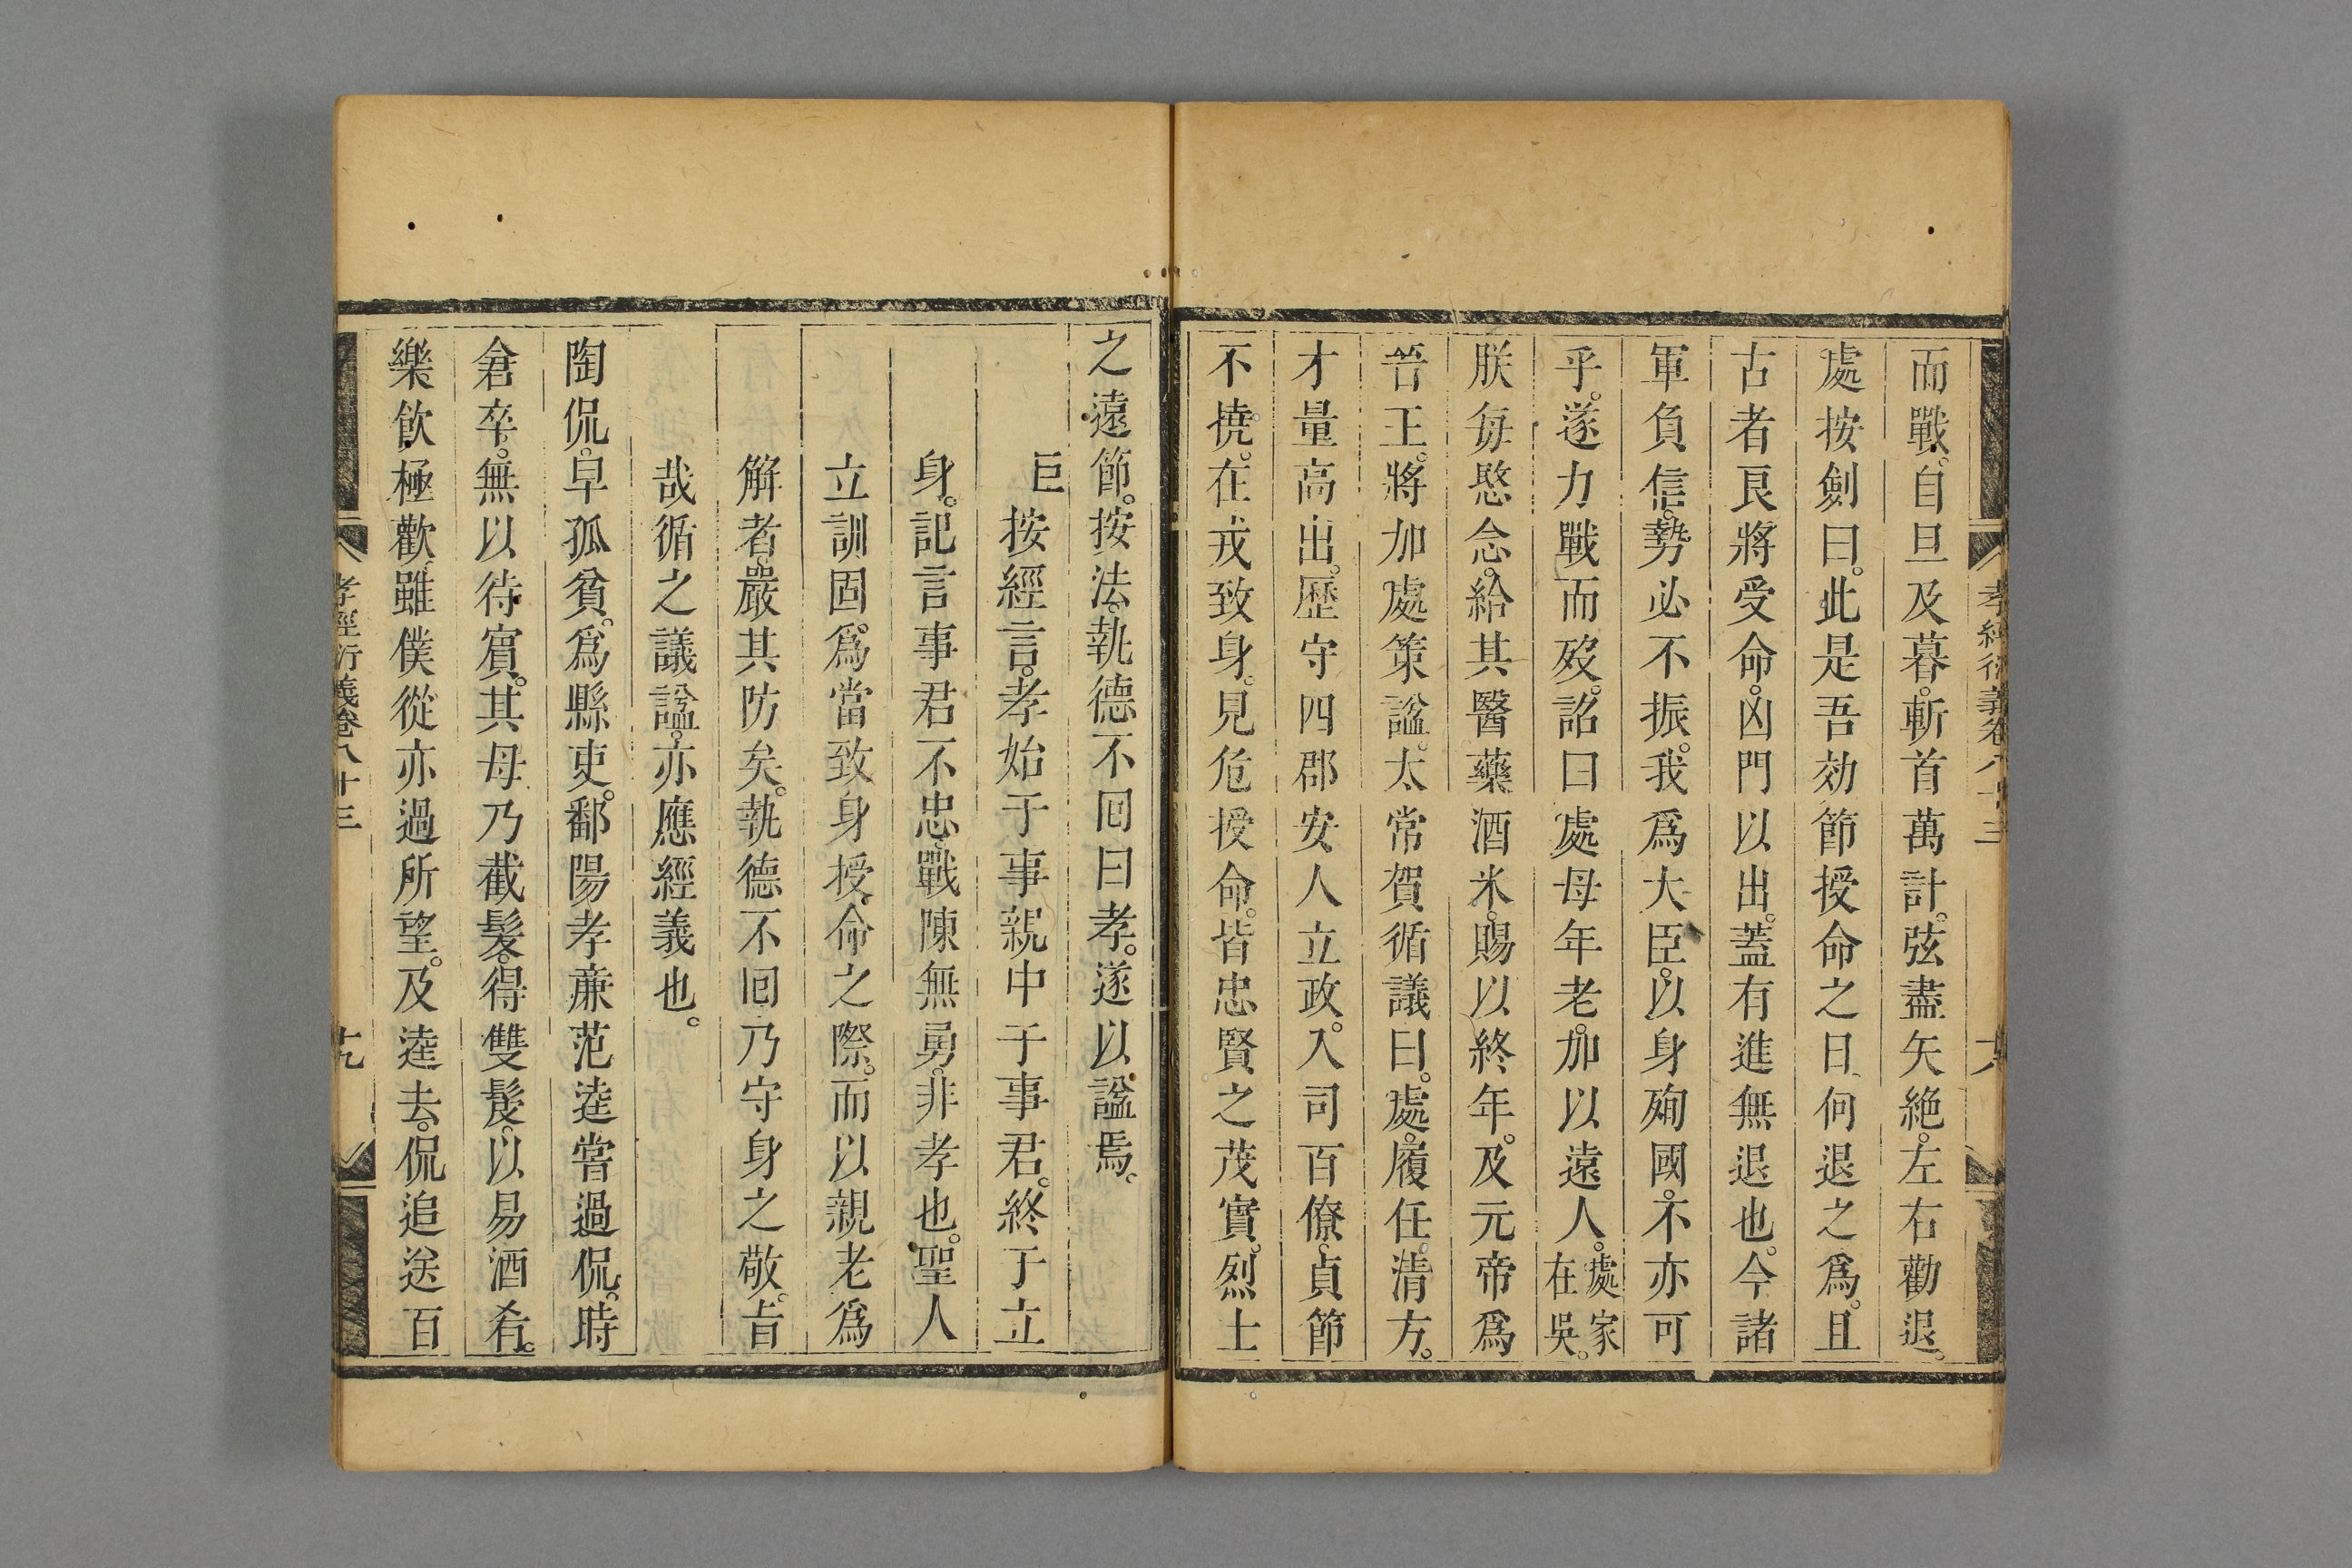 孝經衍義卷八十三
而戰。自旦及暮。斬首萬計。弦盡矢絶。左右勸退。
處按劍曰。此是吾効節授命之日。何退之爲。且
古者良將受命。凶門以出。蓋有進無退也。今諸
軍負信。勢必不振。我爲大臣。以身殉國。不亦可
乎。遂力戰而歿。詔曰處母年老。加以遠人。處家在吳。
朕每愍念。給其醫藥酒米。賜以終年。及元帝爲
晉王。將加處策諡。太常賀循議曰。處。履任清方。
才量高出。歷守四郡安人立政。入司百僚。貞節
不撓。在戎致身。見危授命。皆忠賢之茂實。烈士
之遠節。按法。執德不囘曰孝。遂以諡焉。
臣按經言。孝始于事親中于事君。終于立
身。記言事君不忠。戰陳無勇。非孝也。聖人
立訓固。爲當致身授命之際。而以親老爲
解者。嚴其防矣。執德不囘乃守身之敬。旨
哉循之議諡。亦應經義也。
陶侃。早孤貧。爲縣吏。鄱陽孝亷范逵嘗過侃。時
倉卒。無以待賓。其母乃截髮。得雙髲。以易酒肴。
樂飲極歡。雖僕從亦過所望。及逵去。侃追送百
孝經衍義卷八十三
十九